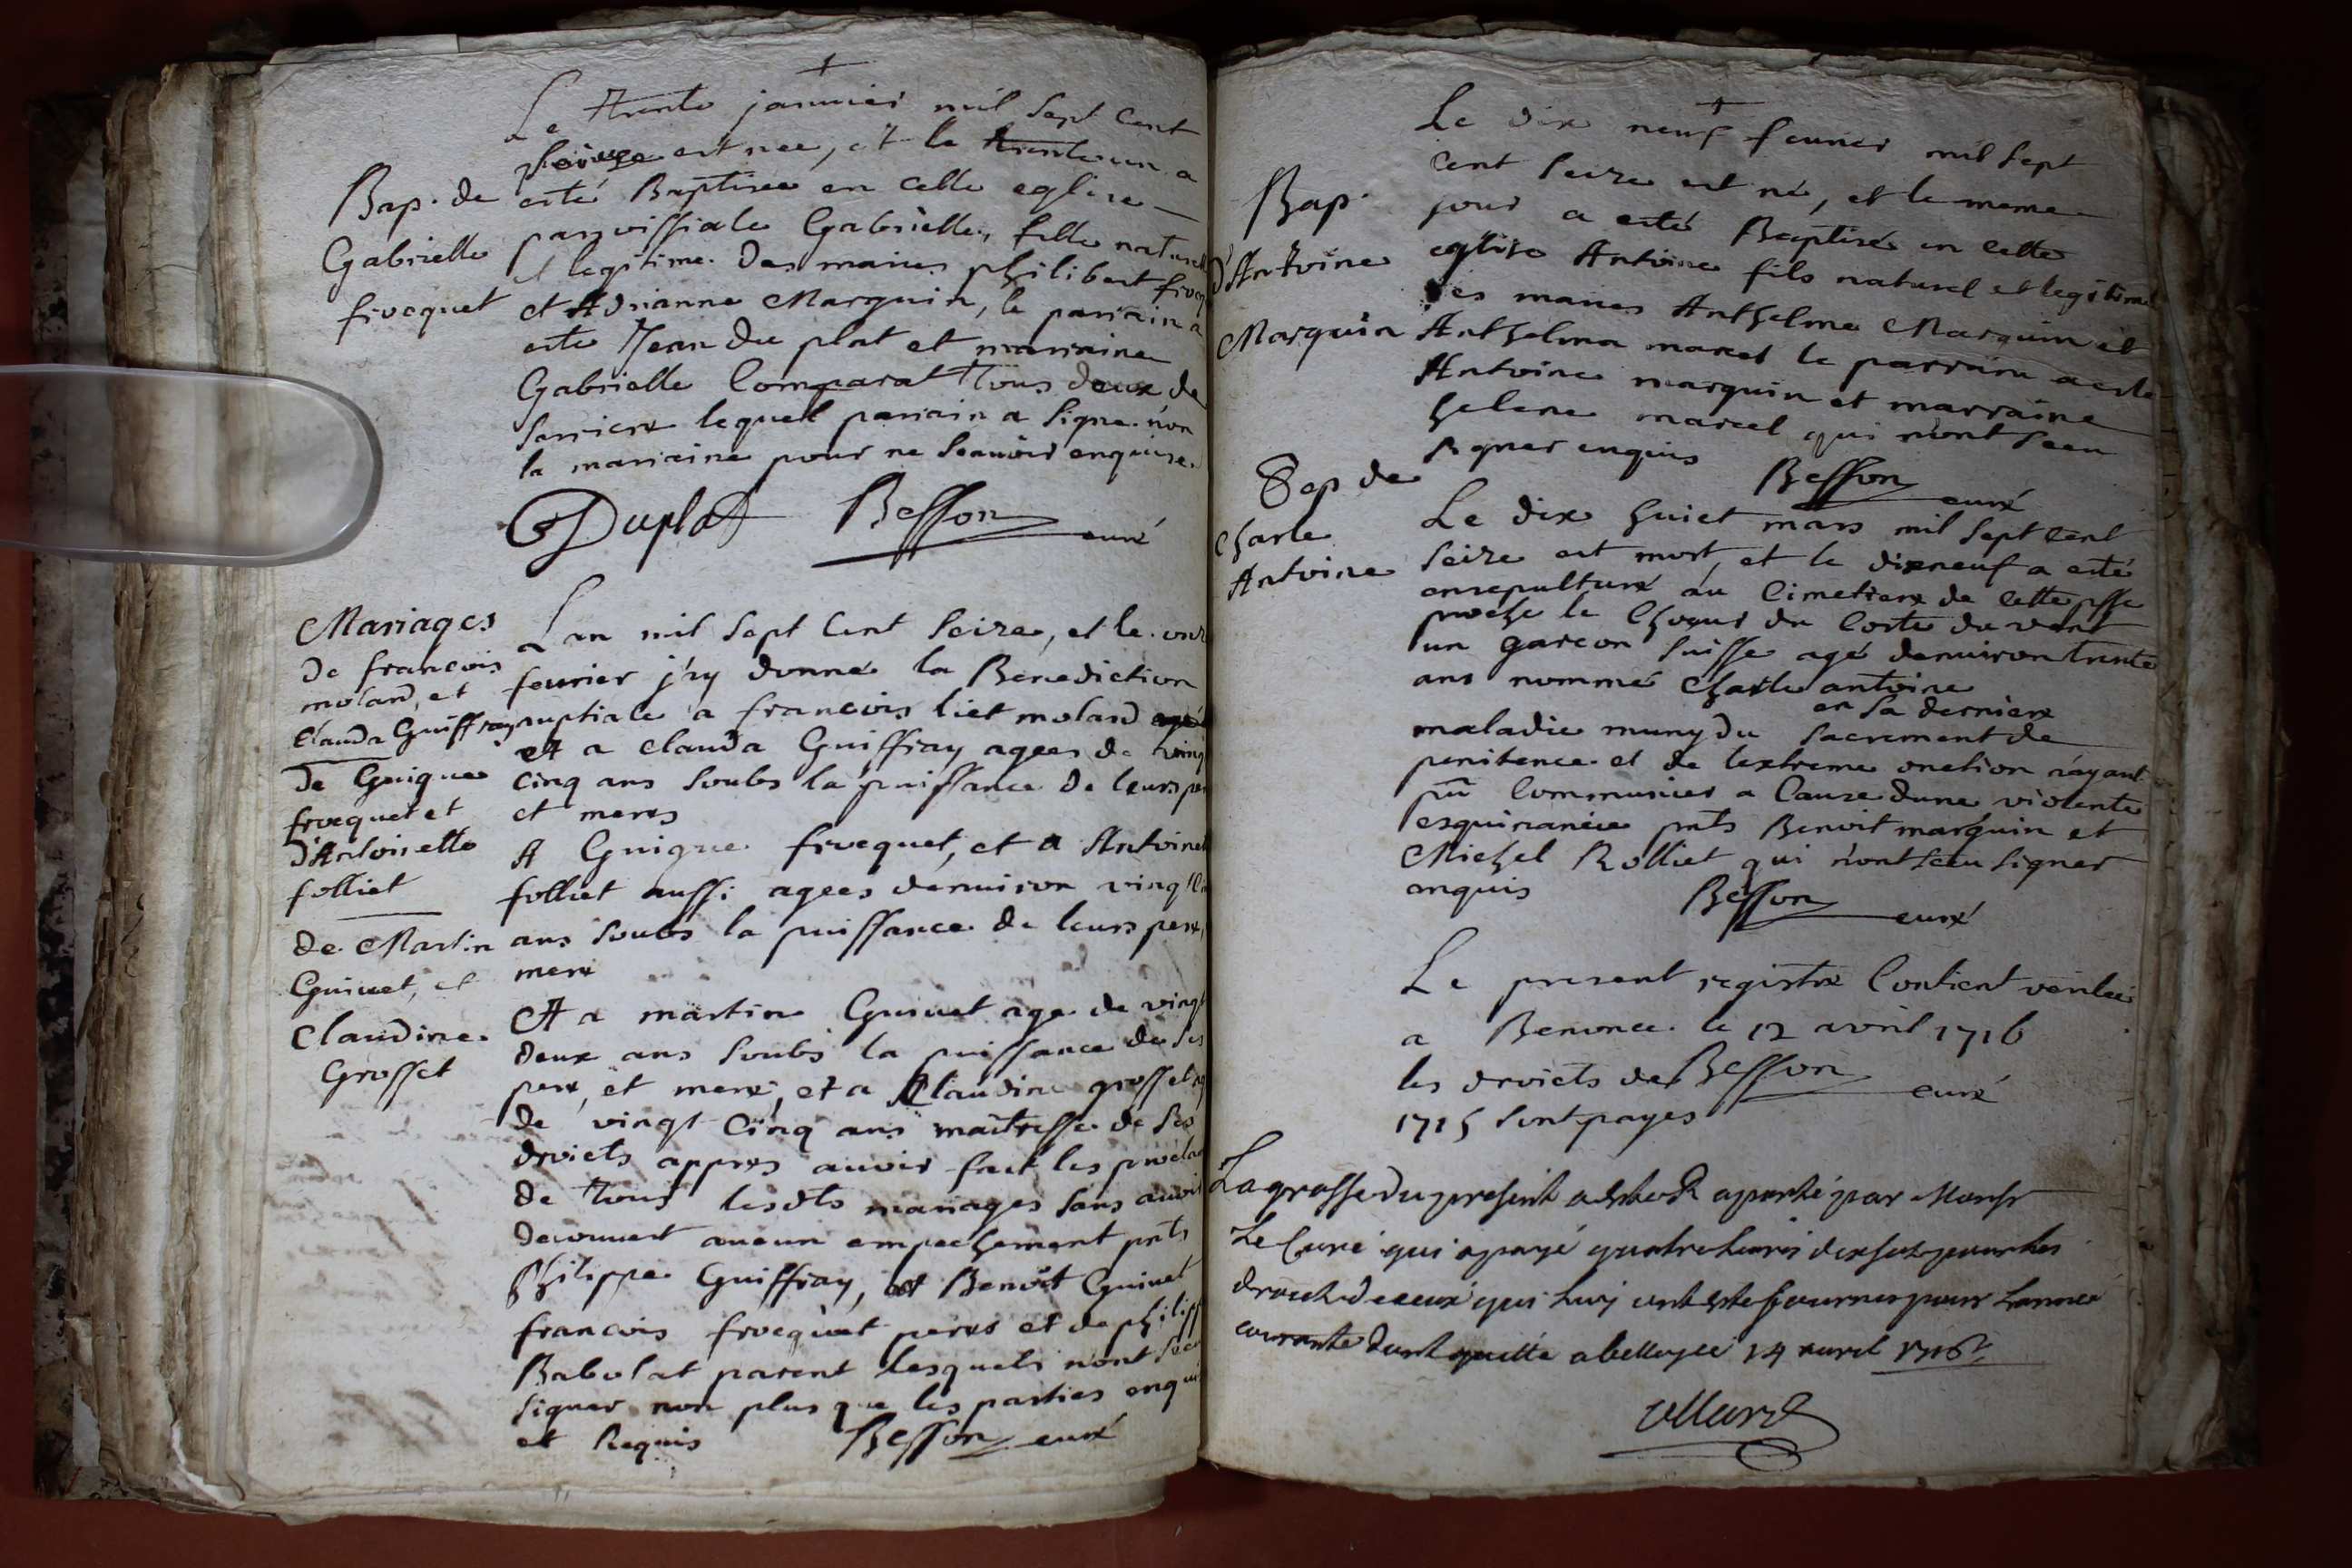 Le trente janvier mil sept cent
seize est nee, et le trente un a
Bap. de
esté Baptisee en cette eglise
Gabrielle
parroissiale Gabrielle, fille naturelle
et legitime des maries philibert
frocquet
et Adrianne Marquin, le parrain a
esté Jean du plat et marraine
Gabrielle Comparat tous deux de
lequel parrain a signé non
la marraine pour ne scauoir enquise.
Duplat Besson curé
Mariages
de francois
moland, et
clauda Guiffray
de Guigue
frocquet et
d'Antoinette
folliet
de Martin
Guinet, et
Claudine
Grosset
Lan mil sept cent seize, et le onze
feurier j'ay donné la Benediction
nuptiale a francois liet molard agé
et a clauda Guiffray agees de vingt
cinq ans soubs la puissance de leurs per
et meres
A Guigue frocquet, et a Antoinet
folliet aussi agees denuiron vingt
ans soubs la puissance de leurs pere,
mere
Et a martin Guinet age de vingt
deux ans soubs la puissance de ses
pere, et mere, et a Claudine grosset
de vingt cinq ans maitresse de ses
droicts appres auoir fait les proclam
de tous lesdts mariages sans auoir
decouuert aucun empechement pnts
Philippe Guiffray, et Benoit Guinet
francois frocquet peres et de philipp
Babolat parent lesquels n'ont sceu
signer non plus que les parties enquis
et requis Besson curé
Le dix neuf feurier mil sept
cent seize est né, et le meme
Bap.
jour a esté Baptisé en cette
d'Antoine
eglise Antoine fils naturel et legitime
des maries Anthelme Marquin et
Marquin
Anthelma marcel le parrain a esté
Antoine marquin et marraine
helene marcel qui n'ont sceu
signer enquis Besson curé
Sep de
charle
Antoine
Le dix huict mars mil sept cent
seize est mort, et le dixneuf a esté
ensepulturé au Cimetiere de cette psse
proche le Choeur du Costé du vent
un garcon suisse agé denuiron trente
ans nommé charle antoine
en sa derniere
maladie muny du sacrement de
penitence et de lextreme onction n'ayant
pû Communier a Cause dune violente
esquinancie pnts Benoit marquin et
Michel Rolliet qui n'ont sceu signer
enquis Besson curé
Le present registre Contient verité
a Benonce le 12 avril 1716
les droicts de Besson curé
1715 sont payes
La grosse du present a esté aporté par Monsr
Le Curé qui a payé quatre liures dix sols pour les
droicts de ceux qui luy ont esté fournis pour Lannee
courante dont quitte a belley ce 14 auril 1716